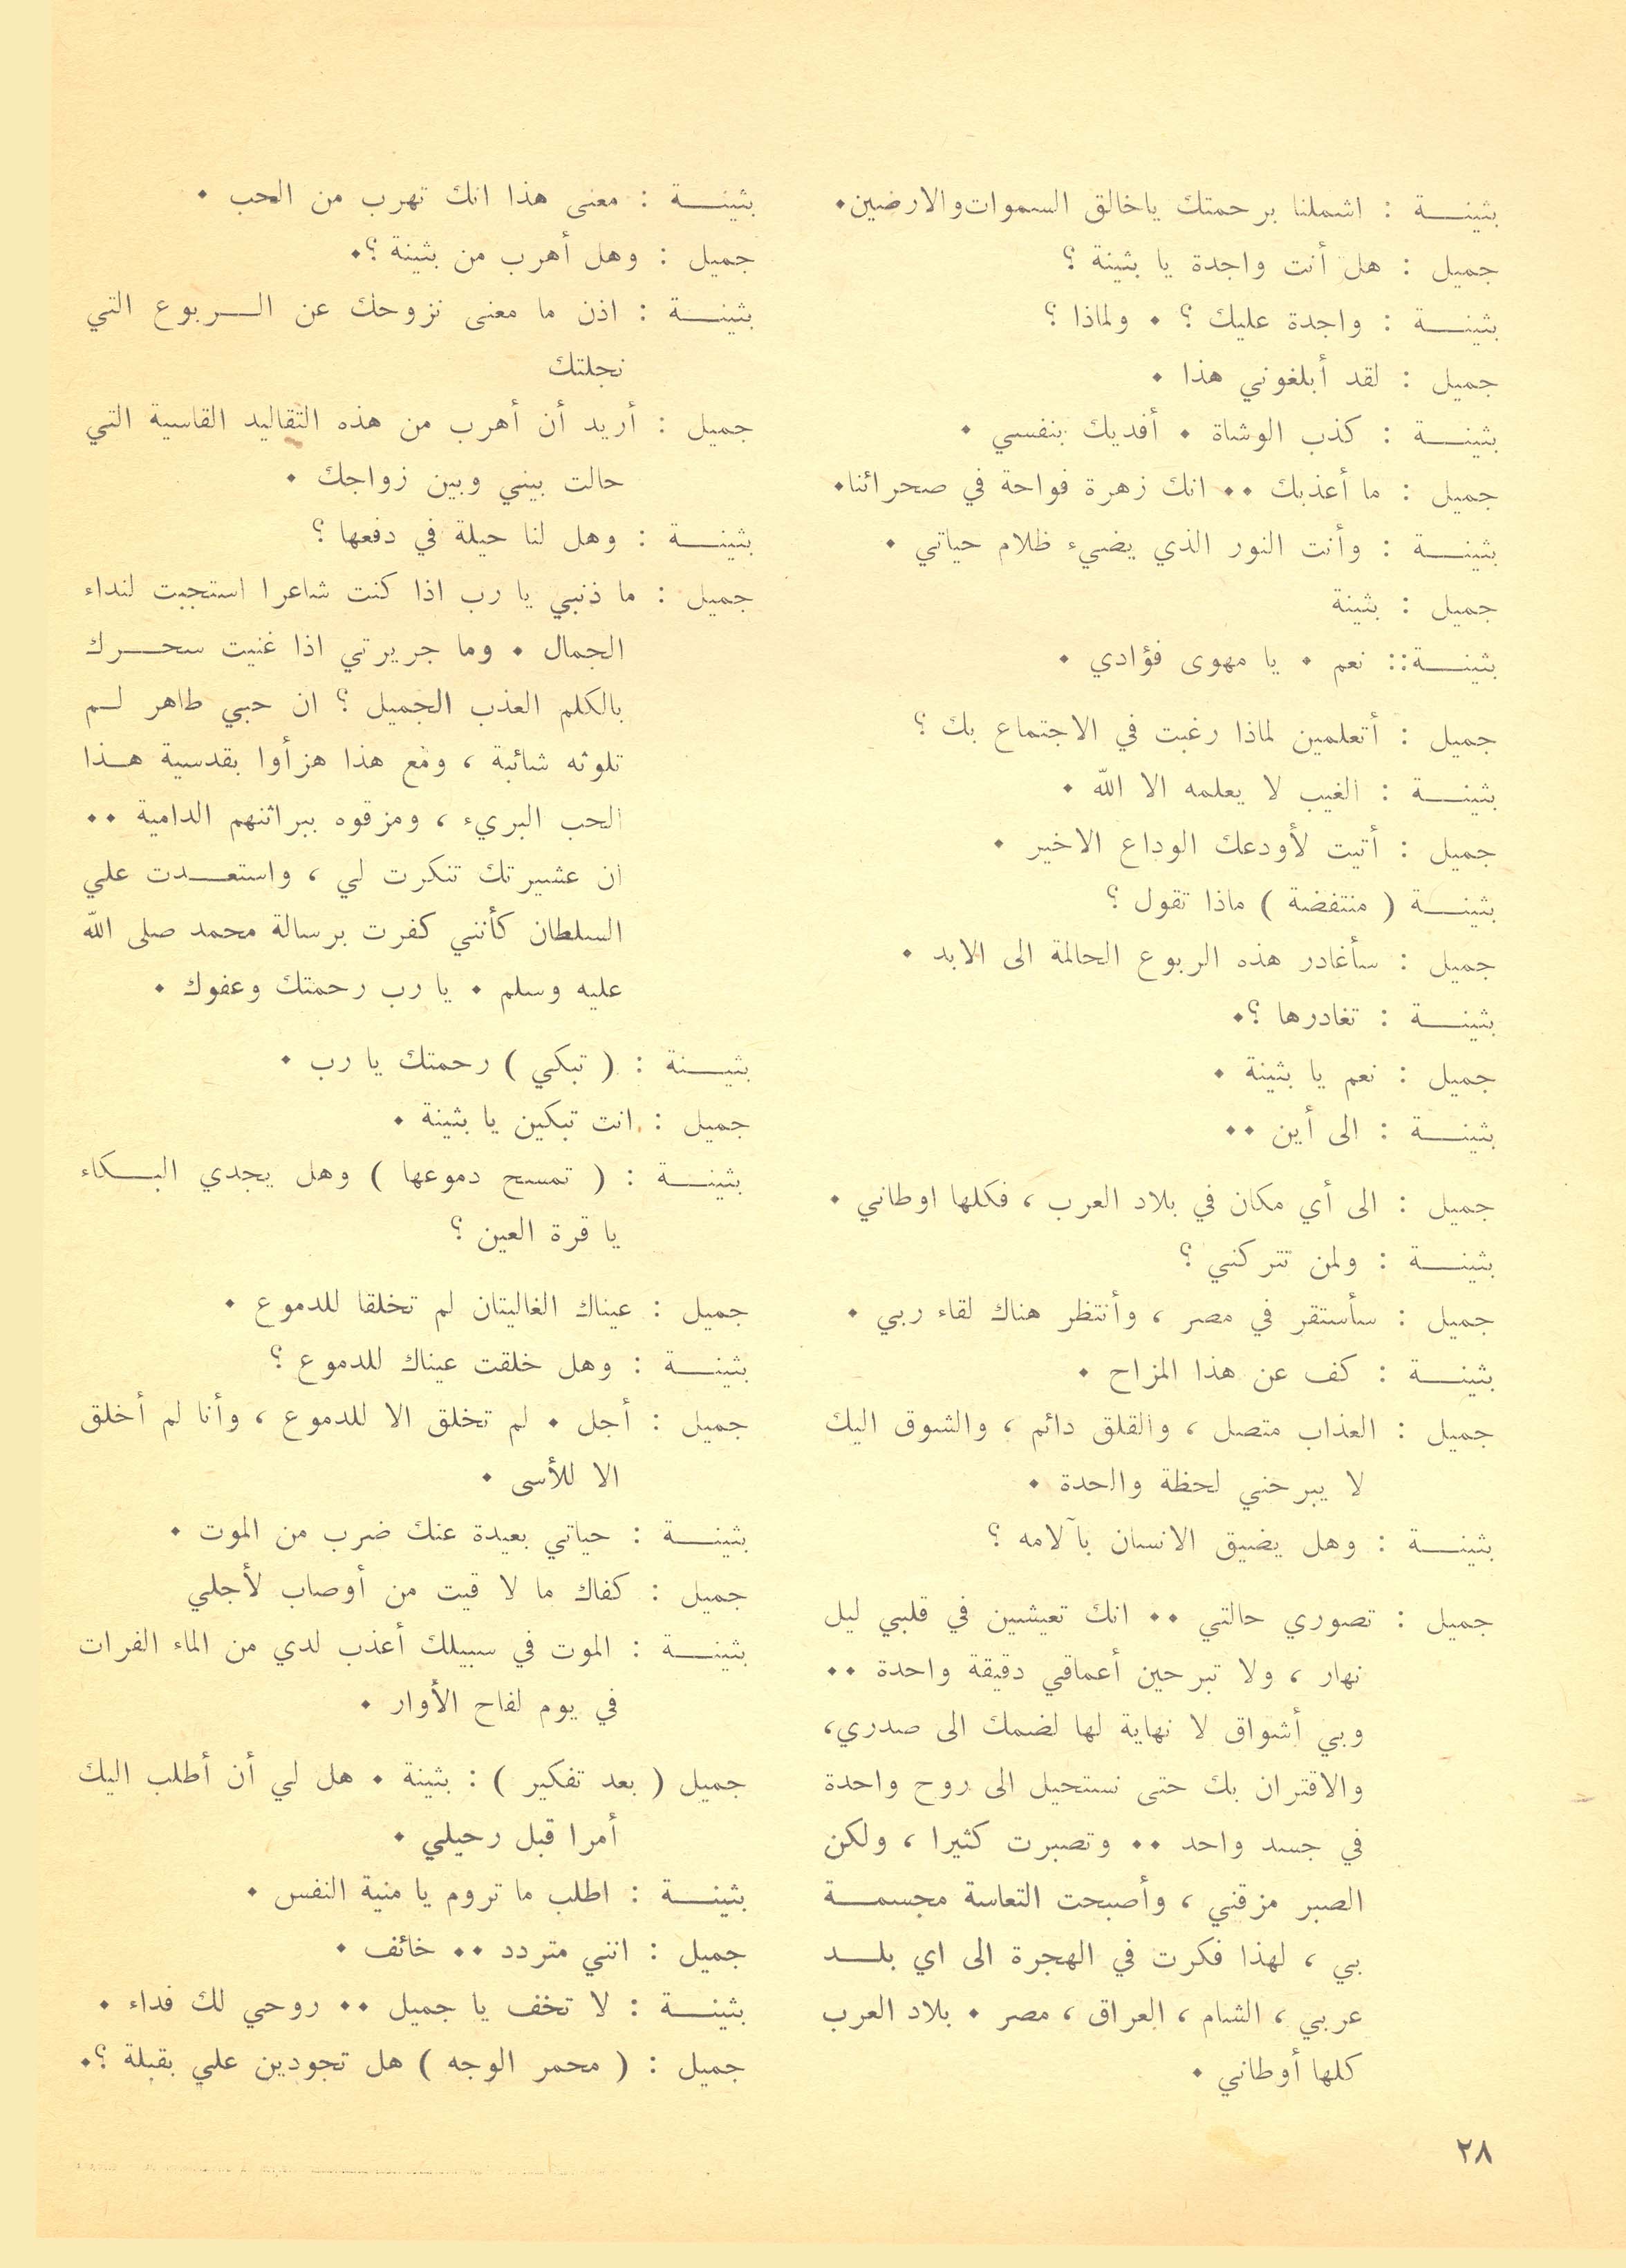 بثينة : اشملنا برحمتك ياخالق السموات والارضين٠
جميل : هل أنت واجدة يا بثينة ؟
بثينة : واجدة عليك ؟ ٠ ولماذا ؟
جميل : لقد أبلغوني هذا ٠
بثينة : كذب الوشاة ٠ أفديك بنفسي ٠
جميل : ما أعذبك ٠٠ انك زهرة فواحة في صحرائنا٠
بثينة : وأنت النور الذي يضيء ظلام حياتي ٠
جميل : بثينة
بثينة:: نعم ٠ يا مهوى فؤادي ٠
جميل : أتعلمين لماذا رغبت في الاجتماع بك ؟
بثينة : الغيب لا يعلمه الا الله ٠
جميل : أتيت لأودعك الوداع الاخير ٠
بثينة ( منتفضة ) ماذا تقول ؟
جميل : سأغادر هذه الربوع الحالمة الى الابد ٠
بثينة : تغادرها ؟٠
جميل : نعم يا بثينة ٠
بثينة : الى أين ٠٠
جميل : الى أي مكان في بلاد العرب ، فكلها اوطاني ٠
بثينة : ولمن تتركني ؟
جميل : سأستقر في مصر ، وأنتظر هناك لقاء ربي ٠
بثينة : كف عن هذا المزاح ٠
جميل : العذاب متصل ، والقلق دائم ، والشوق اليك
لا يبرحني لحظة والحدة ٠
بثينة : وهل يضيق الانسان بآلامه ؟
جميل : تصوري حالتي ٠٠ انك تعيشين في قلبي ليل
نهار ، ولا تبرحين أعماقي دقيقة واحدة ٠٠
وبي أشواق لا نهاية لها لضمك الى صدري،
والاقتران بك حتى نستحيل الى روح واحدة
في جسد واحد ٠٠ وتصبرت كثيرا ، ولكن
الصبر مزقني ، وأصبحت التعاسة مجسمة
بي ، لهذا فكرت في الهجرة الى اي بلد
عربي ، الشام ، العراق ، مصر ٠ بلاد العرب
كلها أوطاني ٠
بثينة : معنى هذا انك تهرب من الحب ٠
جميل : وهل أهرب من بثينة ؟٠
بثينة : اذن ما معنى نزوحك عن الربوع التي
نجلتك
جميل : أريد أن أهرب من هذه التقاليد القاسية التي
حالت بيني وبين زواجك ٠
بثينة : وهل لنا حيلة في دفعها ؟
جميل : ما ذنبي يا رب اذا كنت شاعرا استجبت لنداء
الجمال ٠ وما جريرتي اذا غنيت سحرك
بالكلم العذب الجميل ؟ ان حبي طاهر لم
تلوثه شائبة ، ومع هذا هزأوا بقدسية هذا
الحب البريء ، ومزقوه ببراثنهم الدامية ٠٠
ان عشيرتك تنكرت لي ، واستعدت علي
السلطان كأنني كفرت برسالة محمد صلى الله
عليه وسلم ٠ يا رب رحمتك وعفوك ٠
بثينة : ( تبكي ) رحمتك يا رب ٠
جميل : انت تبكين يا بثينة ٠
بثينة : ( تمسح دموعها ) وهل يجدي البكاء
يا قرة العين ؟
جميل : عيناك الغاليتان لم تخلقا للدموع ٠
بثينة : وهل خلقت عيناك للدموع ؟
جميل : أجل ٠ لم تخلق الا للدموع ، وأنا لم أخلق
الا للأسى ٠
بثينة : حياتي بعيدة عنك ضرب من الموت ٠
جميل : كفاك ما لا قيت من أوصاب لأجلي
بثينة : الموت في سبيلك أعذب لدي من الماء الفرات
في يوم لفاح الأوار ٠
جميل ( بعد تفكير ) : بثينة ٠ هل لي أن أطلب اليك
أمرا قبل رحيلي ٠
بثينة : اطلب ما تروم يا منية النفس ٠
جميل : انني متردد ٠٠ خائف ٠
بثينة : لا تخف يا جميل ٠٠ روحي لك فداء ٠
جميل : ( محمر الوجه ) هل تجودين علي بقبلة ؟٠
٢٨